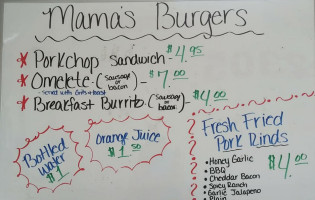 Mama's Burgers
* Porkchop Sandwich - $4.95
* Omelete - (Sausage or bacon) - $7.00
- served with Grits & toast
* Breakfast Burrito (Sausage or bacon) - $4.00
Bottled Water $1
Orange Juice $1.50
Fresh Fried Pork Rinds
• Honey Garlic
• BBQ
• Cheddar Bacon
• Spicy Ranch
• Garlic Jalapeno
• Plain
$4.00